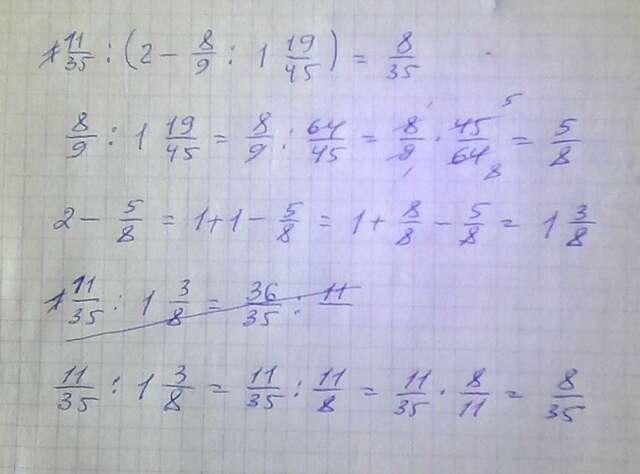 11/35 : (2 - 8/9 : 1 19/45) = 8/35
8/9 : 1 19/45 = 8/9 : 64/45 = 8/9 · 45/64 = 5/8
2 - 5/8 = 1+1 - 5/8 = 1 + 8/8 - 5/8 = 1 3/8
1 11/35 : 1 3/8 = 36/35 : 11
11/35 : 1 3/8 = 11/35 : 11/8 = 11/35 · 8/11 = 8/35